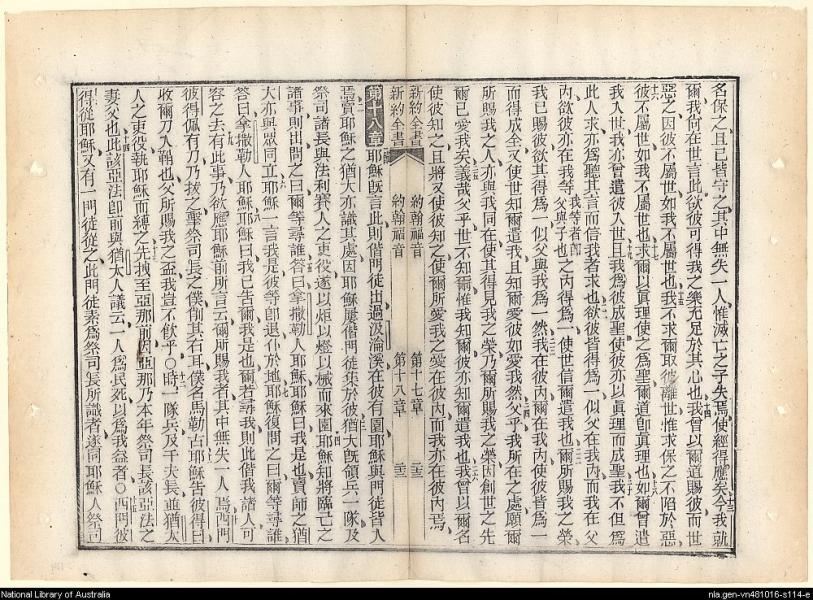 名保之且已皆守之其中無失一人惟滅亡之子失焉使經得應矣今我就
爾我尚在世言此欲彼可得我之樂充足於其心也我曾以爾道賜彼而世
惡之因彼不屬世如我不屬世也我不求爾取彼離世惟求保之不陷於惡
彼不屬世如我不屬世也求爾以眞理使之爲聖爾道卽眞理也如爾曾遣
我入世我亦曾遣彼入世且我爲彼成聖使彼亦以眞理而成聖我不但爲
此人求亦爲聽其言而信我者求也欲彼皆得爲一似父在我內而我在父
內欲彼亦在我等我等者卽父與子也之內得爲一使世信爾遣我也爾所賜我之榮
我已賜彼欲其得爲一似父與我爲一然我在彼內爾在我內使彼皆爲一
而得成全又使世知爾遣我且知爾愛彼如愛我然父乎我所在之處願爾
所賜我之人亦與我同在使其得見我之榮乃爾所賜我之榮因創世之先
爾已愛我矣義哉父乎世不知爾惟我知爾彼亦知爾遣我也我曾以爾名
使彼知之且將又使彼知之使爾所愛我之愛在彼內而我亦在彼內焉
新約全書 約翰福音 第十七章 三三
新約全書 約翰福音 第十八章 三三
第十八章耶穌旣言此則偕門徒出過汲淪溪在彼有園耶穌與門徒皆入
焉賣耶穌之猶大亦識其處因耶穌屢偕門徒集於彼猶大旣領兵一隊及
祭司諸長與法利賽人之吏役遂以炬以燈以械而來園耶穌知將臨己之
諸事則出問之曰爾等尋誰答曰拿撒勒人耶穌耶穌曰我是也賣師之猶
大亦與眾同立耶穌一言我是彼等卽退仆於地耶穌復問之曰爾等尋誰
答曰拿撒勒人耶穌耶穌曰我已告爾我是也爾若尋我則此偕我諸人可
容之去有此事乃欲應耶穌前所言云爾所賜我者其中無失一人焉西門
彼得佩有刀乃拔之擊祭司長之僕削其右耳僕名馬勒古耶穌告彼得曰
收爾刀入鞘也父所賜我之盃我豈不飲乎○時一隊兵及千夫長並猶太
人之吏役執耶穌而縛之先拽至亞那前因亞那乃本年祭司長該亞法之
妻父也此該亞法卽前與猶太人議云一人爲民死以爲我益者○西門彼
得從耶穌又有一門徒從之此門徒素爲祭司長所識者遂同耶穌入祭司
National Library of Australia
nla.gen-vn481016-s114-e